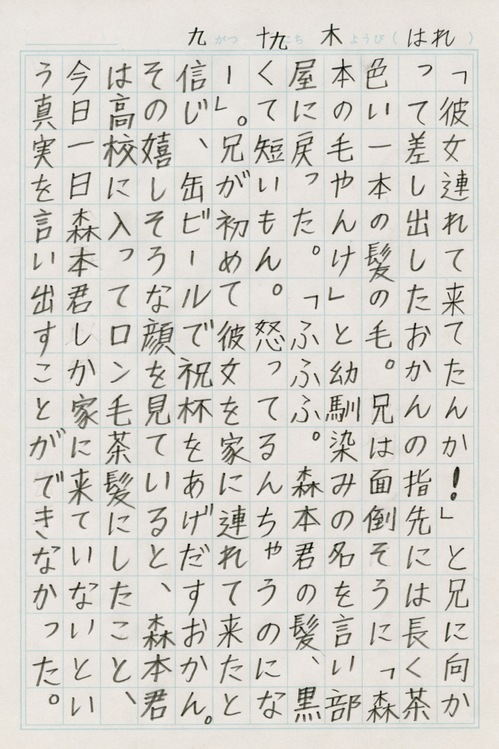 九がつ十九にち 木ようび（はれ）
「彼女連れて来てたんか！」と兄に向か
って差し出したおかんの指先には長く茶
色い一本の髪の毛。兄は面倒そうに「森
本の毛やんけ」と幼馴染みの名を言い部
屋に戻った。「ふふふ。森本君の髪、黒
くて短いもん。怒ってるんちゃうのにな
ー」。兄が初めて彼女を家に連れて来たと
信じ、缶ビールで祝杯をあげだすおかん。
その嬉しそうな顔を見ていると、森本君
は高校に入ってロン毛茶髪にしたこと、
今日一日森本君しか家に来ていないとい
う真実を言い出すことができなかった。